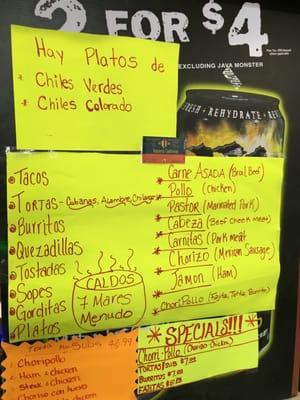 2 FOR $4
EXCLUDING JAVA MONSTER
FRESH • REHYDRATE • REV
Hay Platos de
* Chiles Verdes
* Chiles Colorado
• Tacos
• Tortas - Cubanas, Alambre, Chilanga
• Burritos
• Quezadillas
• Tostadas
• Sopes
• Gorditas
• Platos
CALDOS
7 Mares
Menudo
* Carne ASADA (Broil Beef)
* Pollo (Chicken)
* Pastor (Marinated Pork)
* Cabeza (Beef Cheek meat)
* Carnitas (Pork meat)
* Chorizo (Mexican Sausage)
* Jamon (Ham)
* Chori Pollo (Fajita, Torta, Burrito)
Torta
Subs $6.99
Choripollo
Ham & Chicken
Steak & Chicken
Chorizo con huevo
* SPECIALS!!! *
Chori-Pollo (Chorizo Chicken)
TORTAS/SUB $7.99
BURRITOS
FAJITAS